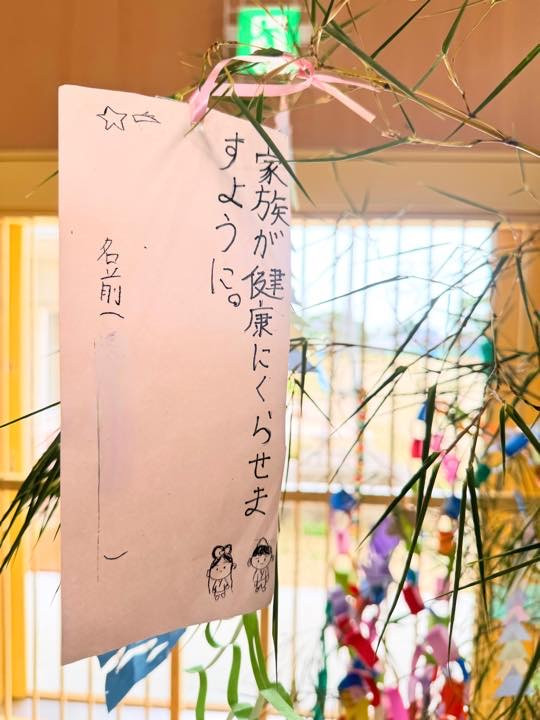 家族が健康にくらせま
すように。
名前（　　）